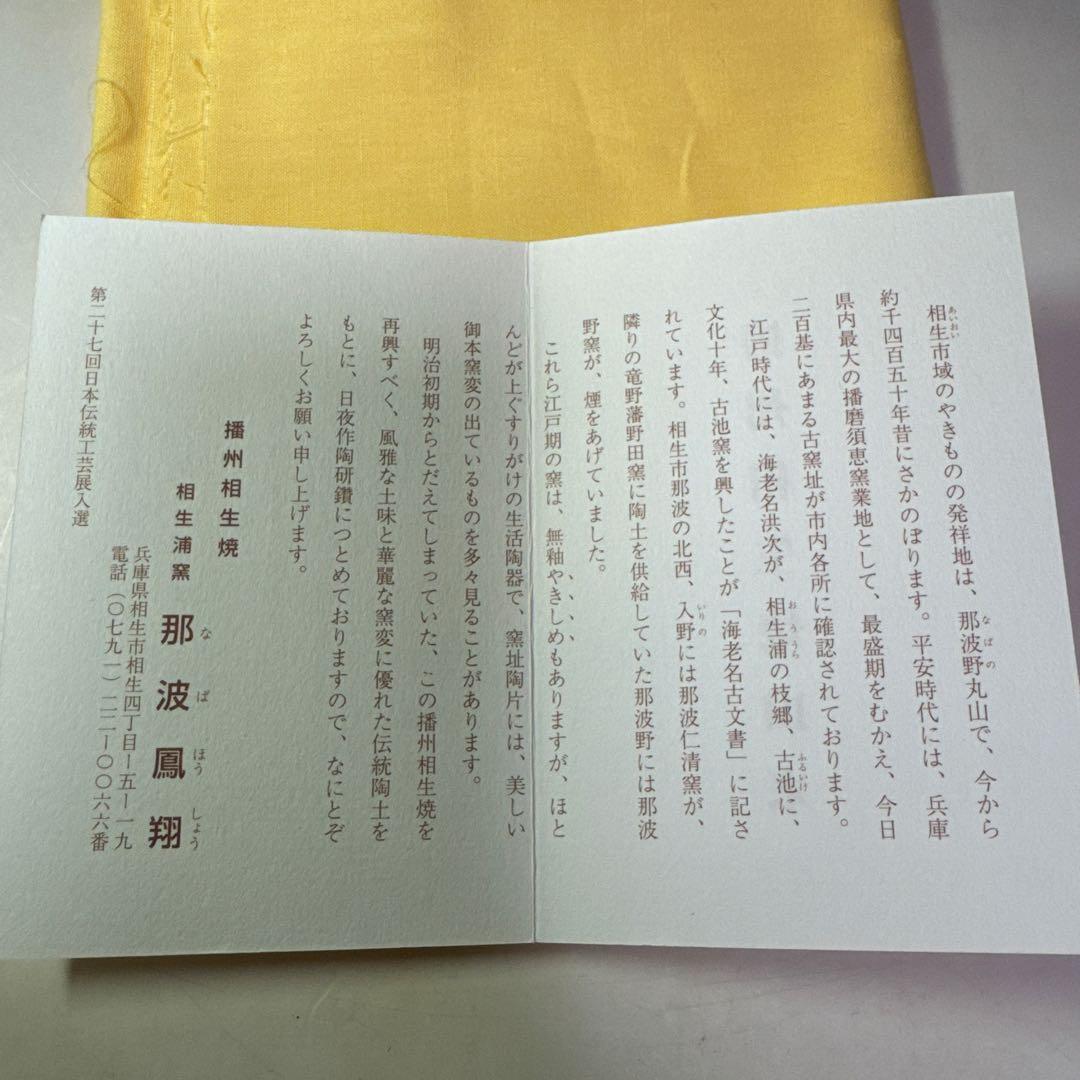 相生市域のやきものの発祥地は、那波野丸山で、今から
約千四百五十年昔にさかのぼります。平安時代には、兵庫
県内最大の播磨須恵窯業地として、最盛期をむかえ、今日
二百基にあまる古窯址が市内各所に確認されております。
江戸時代には、海老名洪次が、相生浦の枝郷、古池に、
文化十年、古池窯を興したことが「海老名古文書」に記さ
れています。相生市那波の北西、入野には那波仁清窯が、
隣りの竜野藩野田窯に陶土を供給していた那波野には那波
野窯が、煙をあげていました。
これら江戸期の窯は、無釉やきしめもありますが、ほと
んどが上ぐすりがけの生活陶器で、窯址陶片には、美しい
御本窯変の出ているものを多々見ることがあります。
明治初期からとだえてしまっていた、この播州相生焼を
再興すべく、風雅な土味と華麗な窯変に優れた伝統陶土を
もとに、日夜作陶研鑽につとめておりますので、なにとぞ
よろしくお願い申し上げます。
播州相生焼
相生浦窯 那波鳳翔
なばほうしょう
兵庫県相生市相生四丁目ー五ー一九
電話(〇七九一)二二ー〇〇六六番
第二十七回日本伝統工芸展入選
あいおい
なばの
おううら
ふるいけ
いりの